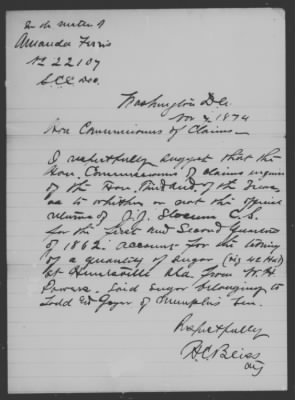 In the matter of
Amanda Ferris
No 22107
S.C.C. Dec.
Washington D.C.
Nov 7 1874
Hon Commissioners of Claims—
I respectfully suggest that the
Hon. Commissioners of claims inquire
of the Hon. Third Aud. of the Treas
as to whether or not the official
returns of J.J. Slocum C.S.
for the first and Second Quarters
of 1862. account for the taking
of a quantity of sugar (viz 42 Hhd)
at Huntsville Ala. from W. H.
Powers. Said sugar belonging to
Todd & of Memphis Ten.
Respectfully
Atty